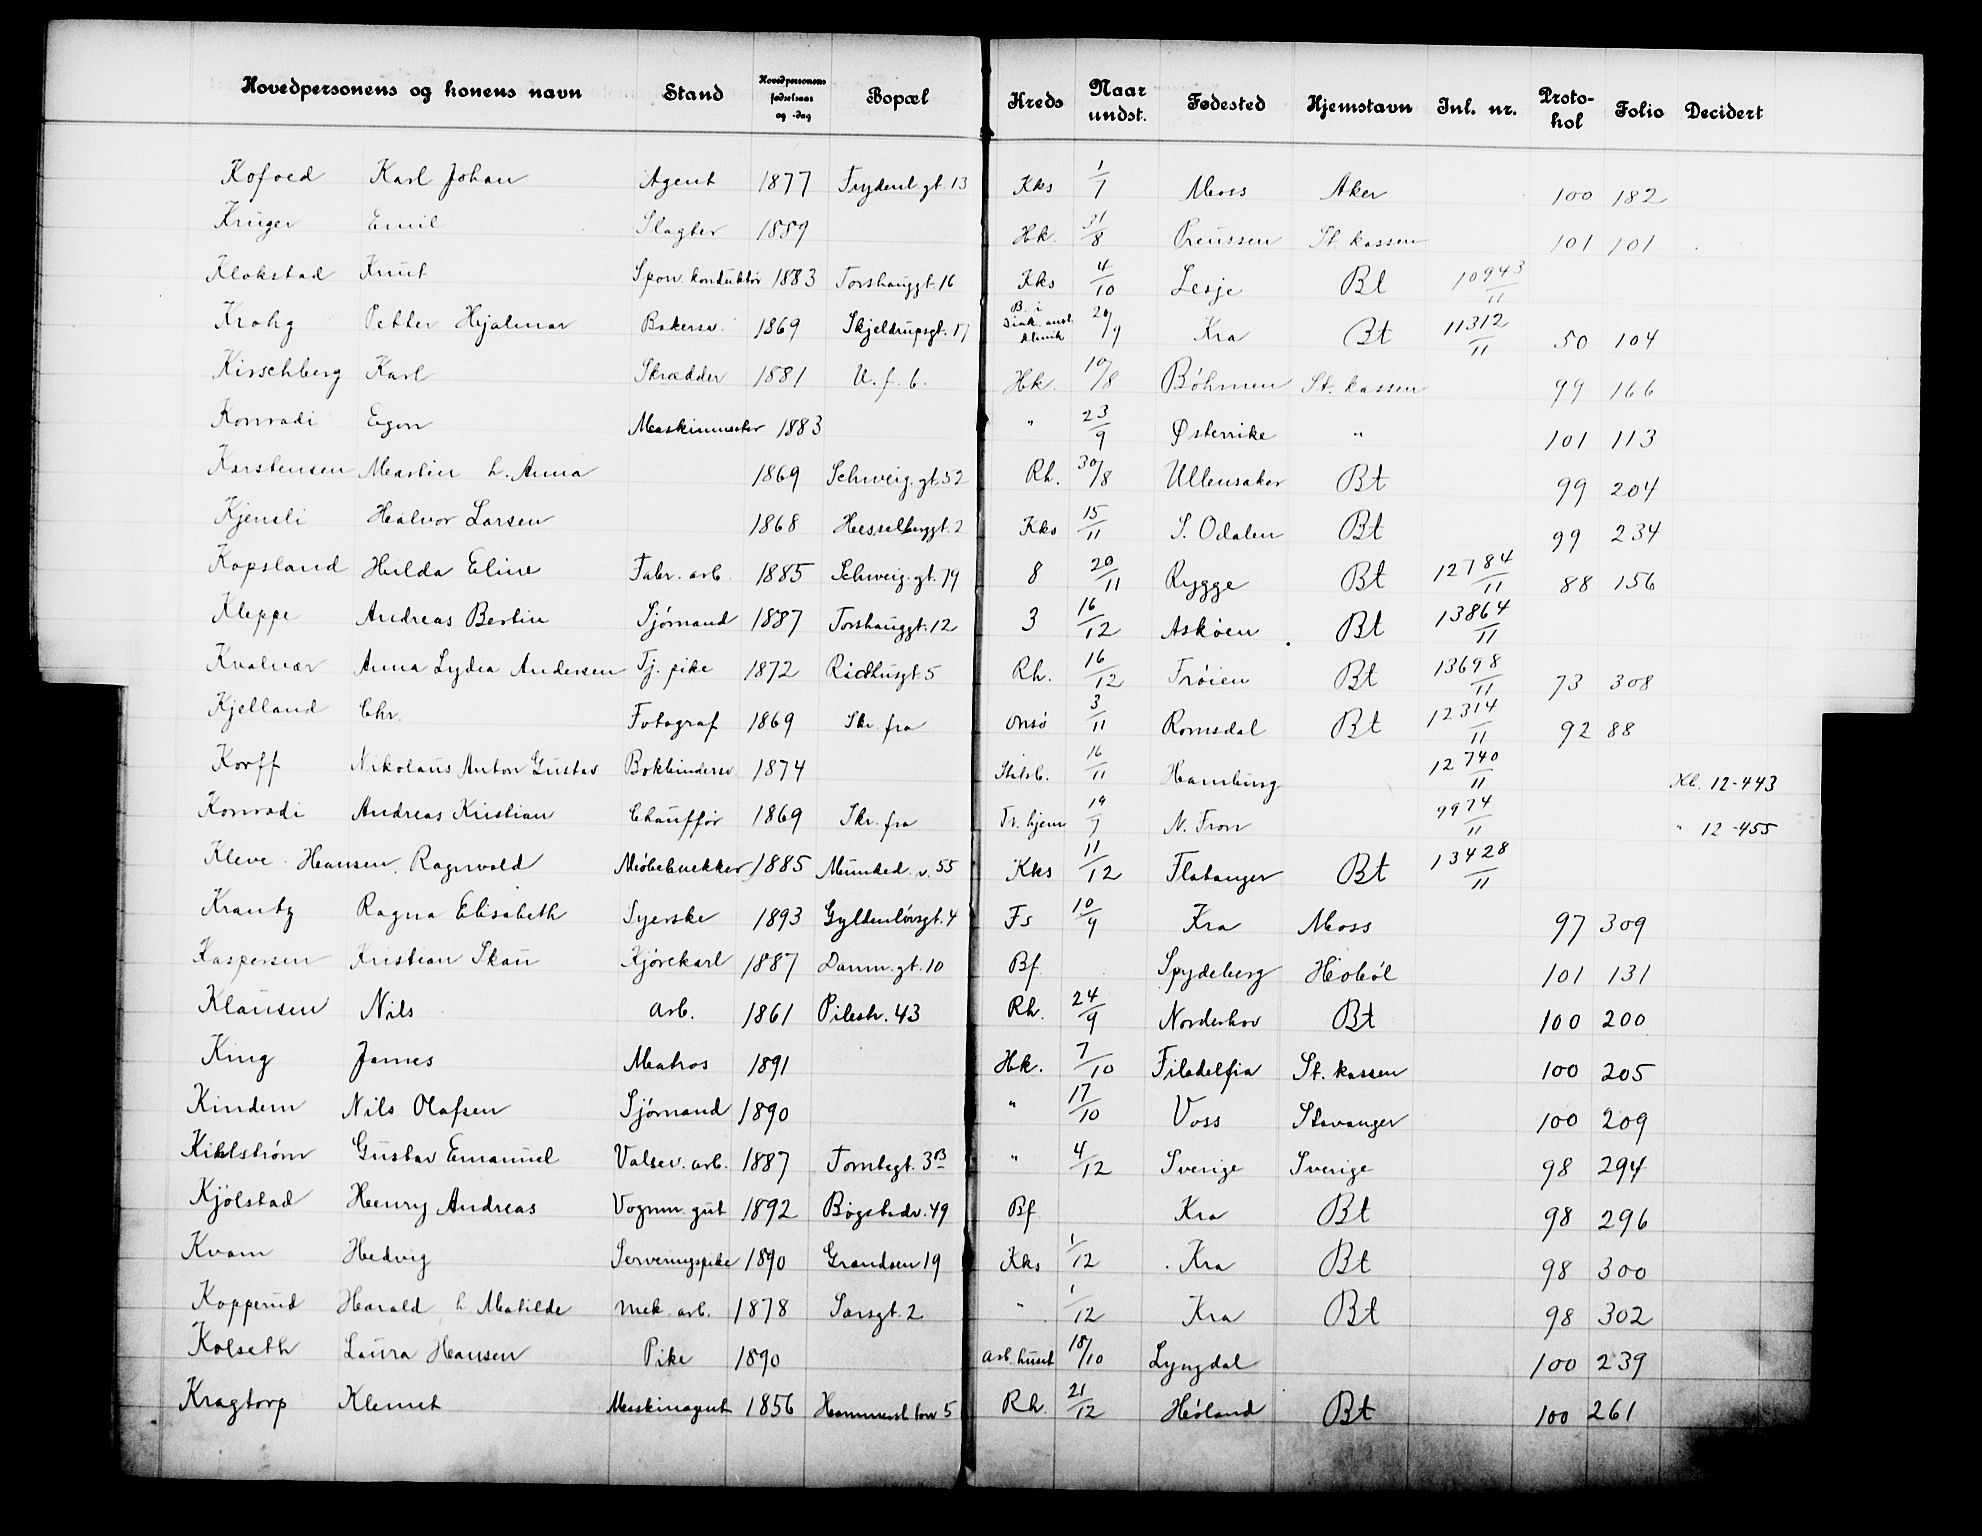 Hovedpersonens og konens navn Stand Hovedpersonens fødselsaar og -dag Bopæl Kreds Naar undst. Fødested Hjemstavn Inl. nr. Protokol Folio Decidert
Kofoed Karl Johan Agent 1877 Frydenl. gt. 13 Kks 1/7 Moss Aker 100 182
Krüger Emil Slagter 1889 Hk. 31/8 Preussen St. kassen 101 101
Klokstad Knut Sporv. konduktør 1883 Torshauggt. 16 Kks 4/10 Lesje Bt 10943/11
Krohg Petter Hjalmar Bakersv. 1869 Skjeldrupsgt. 17 B. i Diak. anst. klinik 20/9 Kra Bt 11312/11 50 104
Kirschberg Karl Skrædder 1881 U. f. b. Hk. 10/8 Bøhmen St. kassen 99 166
Konradi Egon Maskinmester 1883 " 23/9 Østerrike " 101 113
Karstensen Martin h. Anna 1869 Schweig. gt. 52 Rh. 30/8 Ullensaker Bt 99 204
Kjensli Halvor Larsen 1868 Hesselberggt. 2 Kks 15/11 S. Odalen Bt 99 234
Kopsland Hilda Eline Fabr. arb. 1885 Schweig. gt. 79 8 20/11 Rygge Bt 12784/11 88 156
Kleppe Andreas Bertin Sjømand 1887 Torshauggt. 12 3 16/12 Askøen Bt 13864/11
Kvalvær Anna Lydia Andersen Tj. pike 1872 Raadhusgt. 5 Rh. 16/12 Frøien Bt 13698/11 73 308
Kjelland Chr. Fotograf 1869 Skr. fra Onsø 3/11 Romsdal Bt 12314/11 92 88
Korff Nikolaus Anton Gustav Bokbindersv. 1874 Statsb. 16/11 Hamburg 12740/11 Kl. 12-443
Konradi Andreas Kristian Chauffør 1869 Skr. fra Tr. hjem 19/7 N. Fron 9974/11 " 12-455
Kleve-Hansen, Ragnvold Møbelsnekker 1885 Munked. v. 55 Kks 11/12 Flatanger Bt 13428/11
Krantz Ragna Elisabeth Syerske 1893 Gyldenløvsgt. 4 Fs 10/9 Kra Moss 97 309
Kaspersen Kristian Skau Kjørekarl 1887 Damm. gt. 10 Bf. Spydeberg Hobøl 101 131
Klausen Nils Arb. 1861 Pilestr. 43 Rh. 24/9 Norderhov Bt 100 200
King James Matros 1891 Hk. 7/10 Filadelfia St. kassen 100 205
Kindem Nils Olafsen Sjømand 1890 " 17/10 Voss Stavanger 100 209
Kihlstrøm Gustav Emanuel Valsev. arb. 1887 Tomtegt. 3B " 4/12 Sverige Sverige 98 294
Kjølstad Henry Andreas Vognm. gut 1892 Bogstadv. 49 Bf. Kra Bt 98 296
Kvam Hedvig Serveringspike 1890 Grandsen 19 Kks 1/12 Kra Bt 98 300
Kopperud Harald h. Matilde Mek. arb. 1878 Sarsgt. 2 " 1/12 Kra Bt 98 302
Kolseth Laura Hansen Pike 1890 Arb. huset 18/10 Lyngdal 100 239
Kragtorp Klemet Maskinagent 1856 5 Rh. 21/12 Høland Bt 100 261